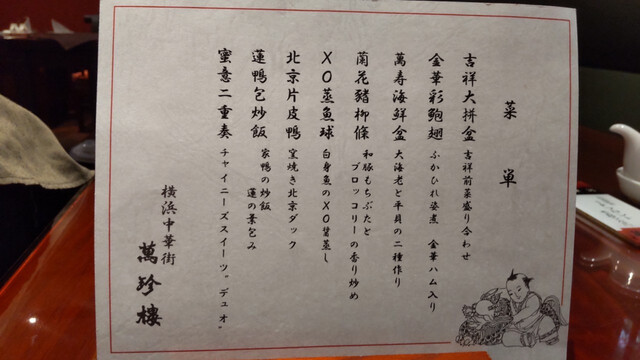 菜単
吉祥大拼盆 吉祥前菜盛り合わせ
金華彩鮑翅 ふかひれ姿煮 金華ハム入り
萬寿海鮮盆 大海老と平貝の二種作り
蘭花豬柳條 和豚もちぶたと
ブロッコリーの香り炒め
XO蒸魚球 白身魚のXO醤蒸し
北京片皮鴨 窯焼き北京ダック
蓮鴨包炒飯 家鴨の炒飯
蓮の葉包み
蜜意二重奏 チャイニーズスイーツ"デュオ"
横浜中華街
萬珍樓